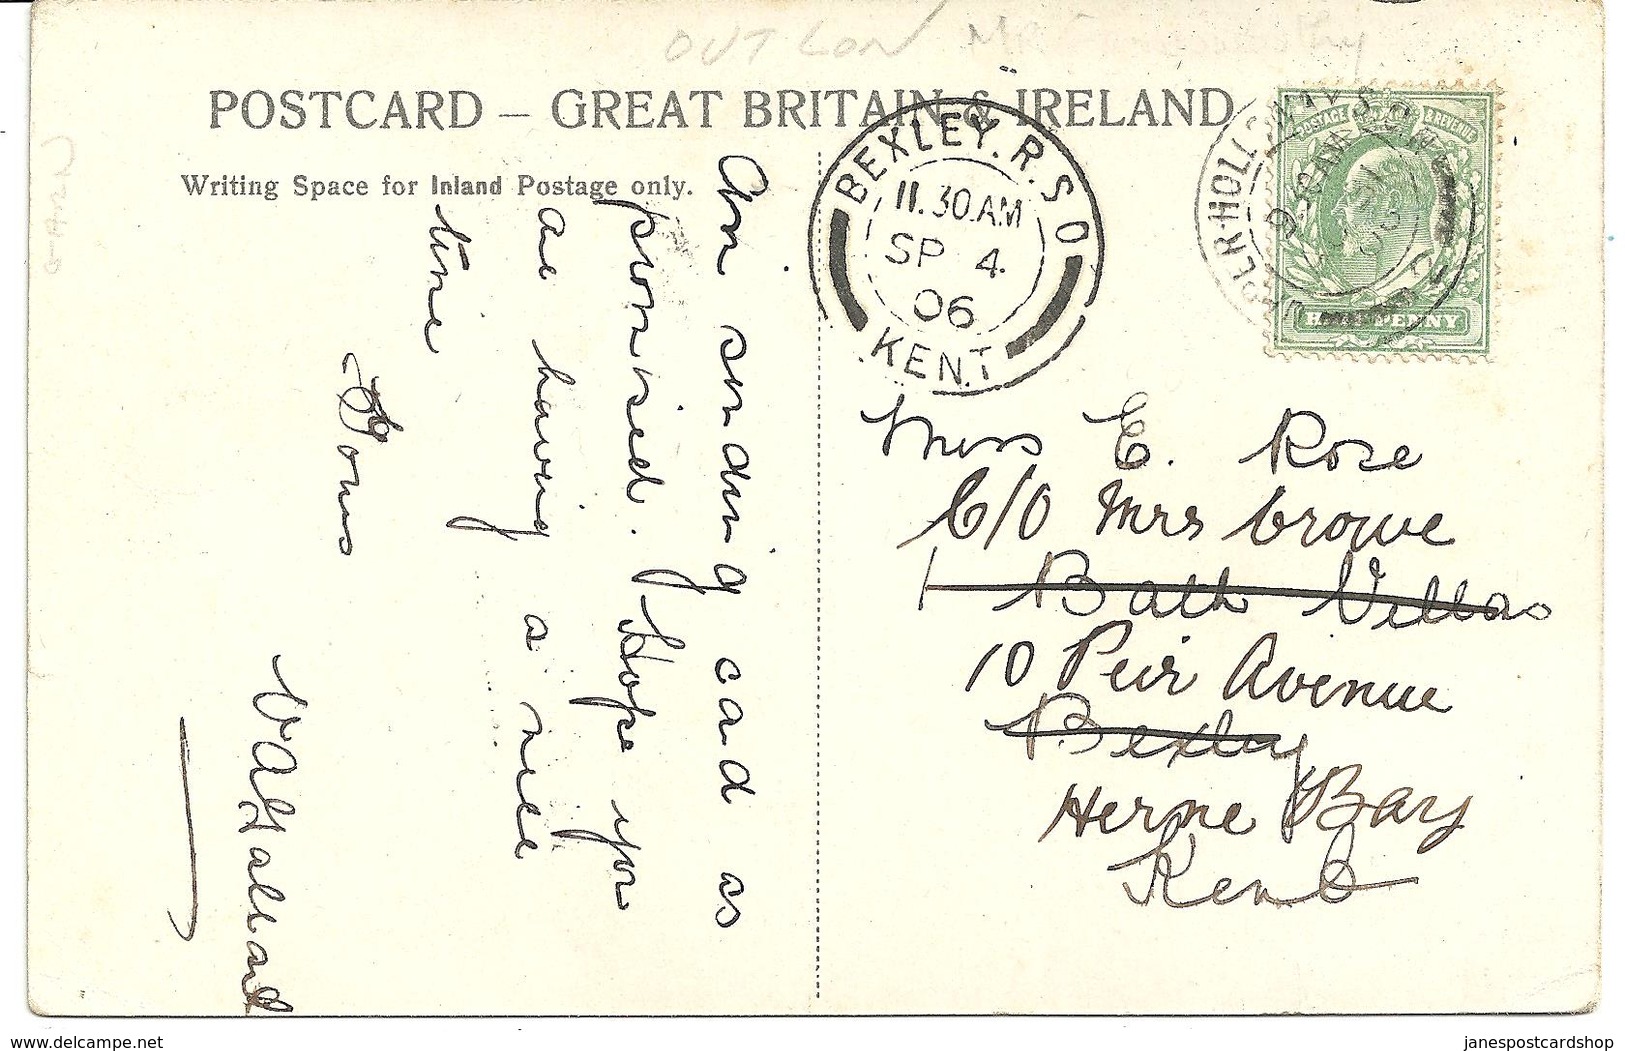 OUT LON
POSTCARD – GREAT BRITAIN & IRELAND
Writing Space for Inland Postage only.
BEXLEY. R.S.O
11.30.AM
SP 4
06
KENT
POSTAGE & REVENUE
HALFPENNY
Am sending cad as
promised. Hope you
are having a nice
time
Yours
Miss E. Rose
C/O Mrs Crowe
1 Bath Villas
10 Peir Avenue
Bexley
Herne Bay
Kent
www.delcampe.net
janespostcardshop